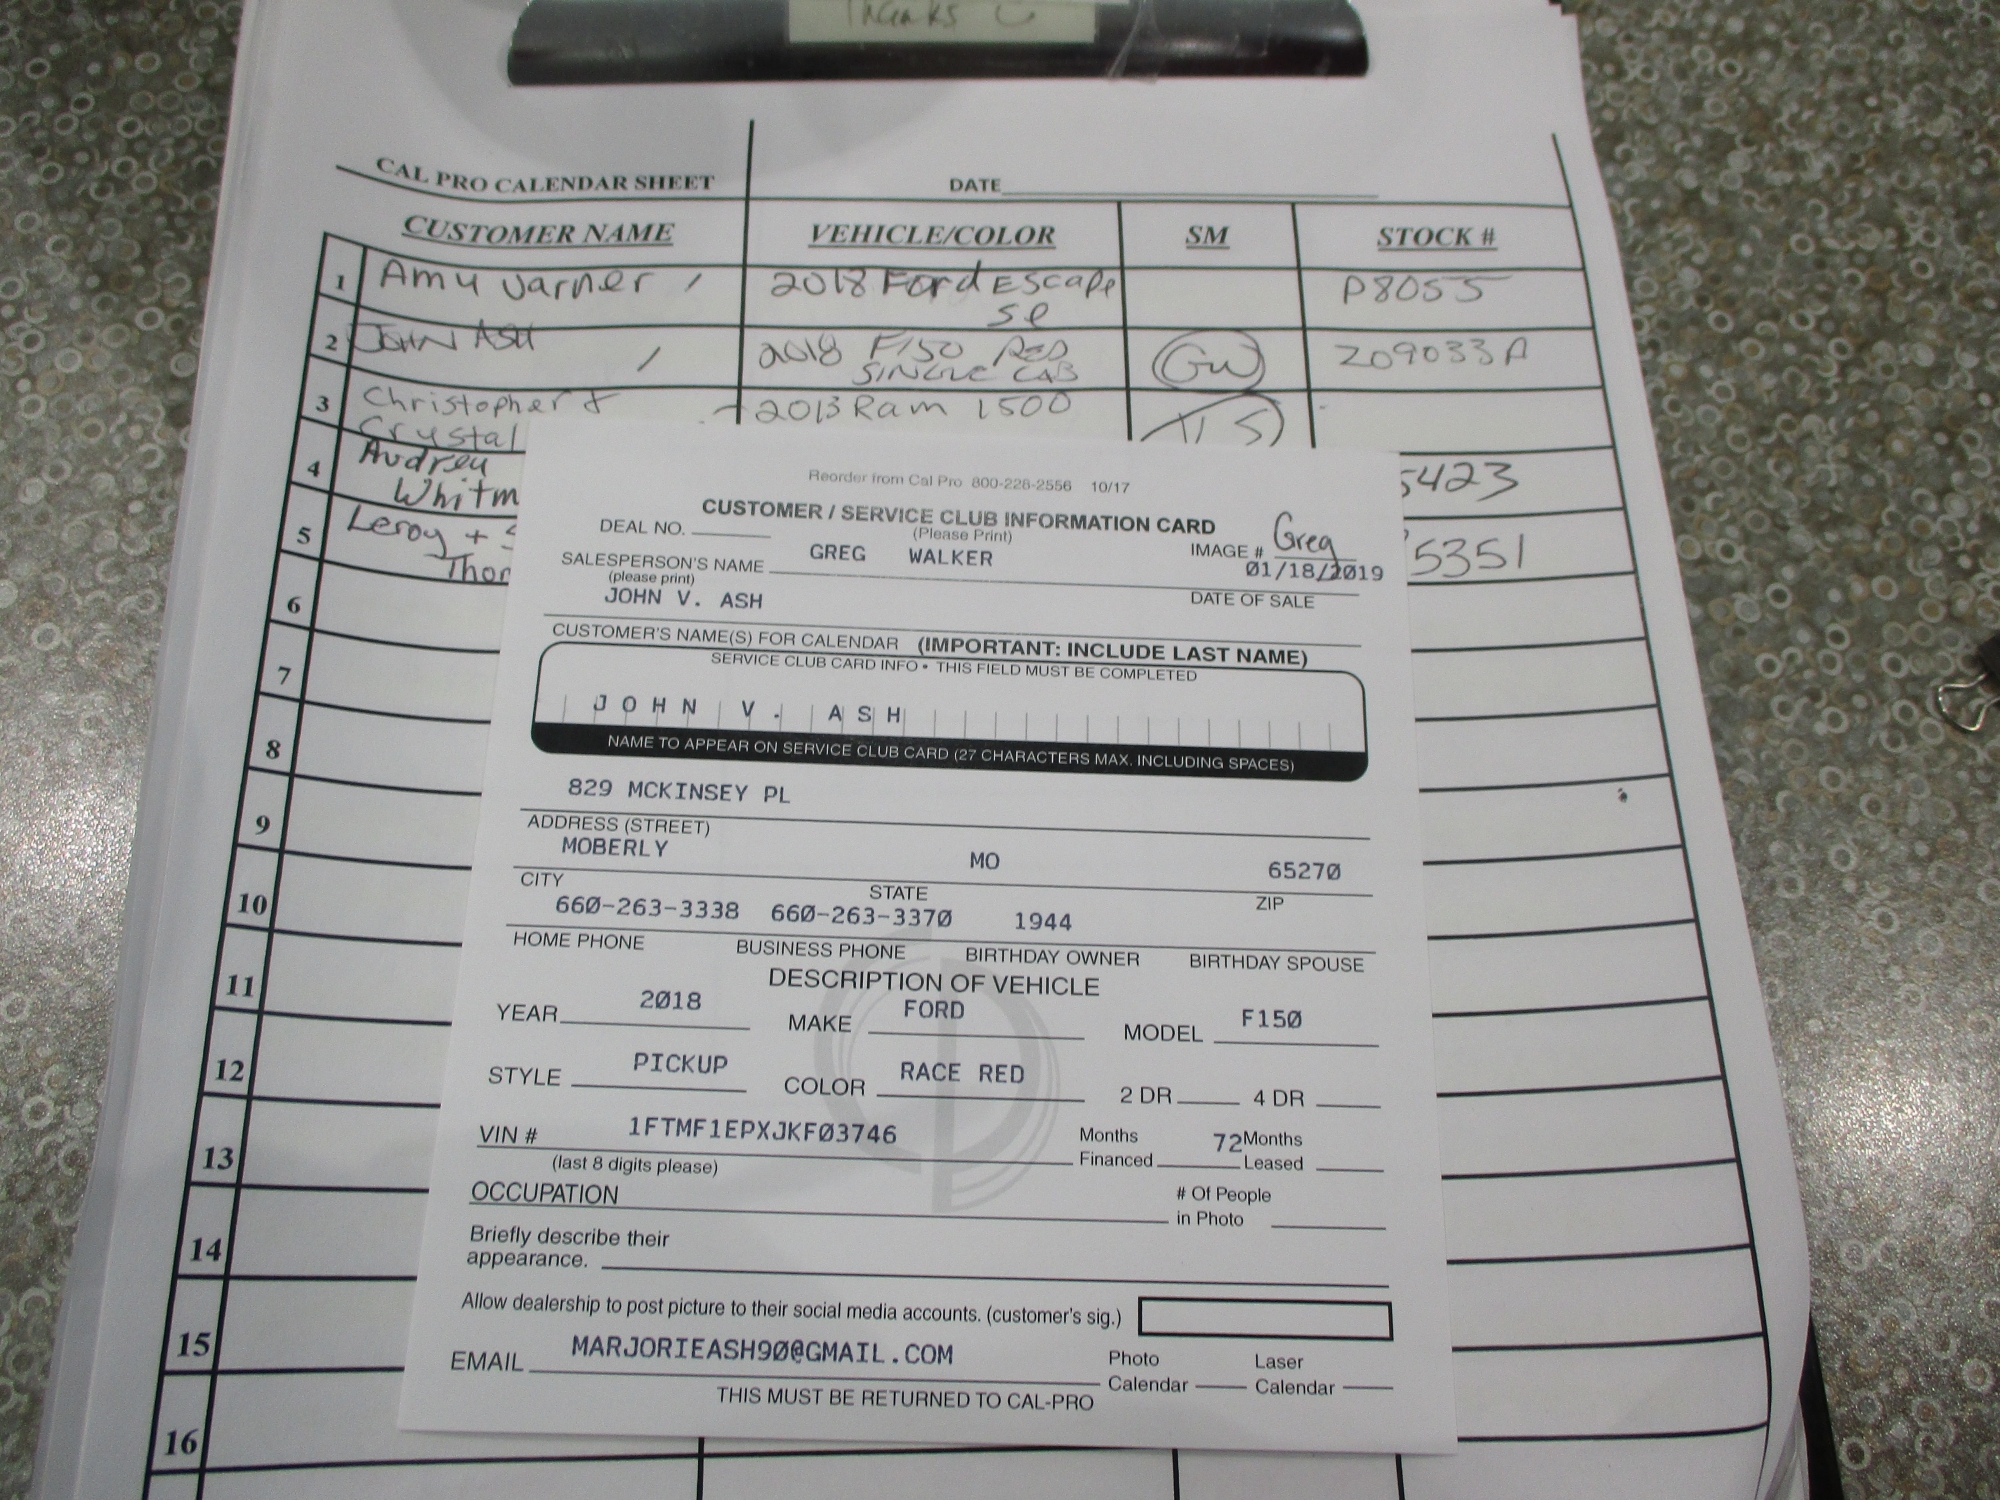 Thanks
CAL PRO CALENDAR SHEET DATE
CUSTOMER NAME VEHICLE/COLOR SM STOCK #
1 Amy Varner 2018 Ford Escape P8055
se
2 JOHN ASH 2018 F150 RED GW Z09033A
SINGLE CAB
3 Christopher & 2013 Ram 1500
Crystal
4 Audrey 5423
Whitm
5 Leroy + S 5351
Thor
6
7
8
9
10
11
12
13
14
15
16
Reorder from Cal Pro 800-228-2556 10/17
CUSTOMER / SERVICE CLUB INFORMATION CARD
(Please Print)
DEAL NO. IMAGE # Greg
SALESPERSON'S NAME GREG WALKER 01/18/2019
(please print) DATE OF SALE
JOHN V. ASH
CUSTOMER'S NAME(S) FOR CALENDAR (IMPORTANT: INCLUDE LAST NAME)
SERVICE CLUB CARD INFO • THIS FIELD MUST BE COMPLETED
JOHN V. ASH
NAME TO APPEAR ON SERVICE CLUB CARD (27 CHARACTERS MAX. INCLUDING SPACES)
829 MCKINSEY PL
ADDRESS (STREET)
MOBERLY MO 65270
CITY STATE ZIP
660-263-3338 660-263-3370 1944
HOME PHONE BUSINESS PHONE BIRTHDAY OWNER BIRTHDAY SPOUSE
DESCRIPTION OF VEHICLE
YEAR 2018 MAKE FORD MODEL F150
STYLE PICKUP COLOR RACE RED 2 DR 4 DR
VIN # 1FTMF1EPXJKF03746 Months Financed 72 Months Leased
(last 8 digits please)
OCCUPATION # Of People in Photo
Briefly describe their
appearance.
Allow dealership to post picture to their social media accounts. (customer's sig.)
EMAIL MARJORIEASH90@GMAIL.COM Photo Calendar Laser Calendar
THIS MUST BE RETURNED TO CAL-PRO